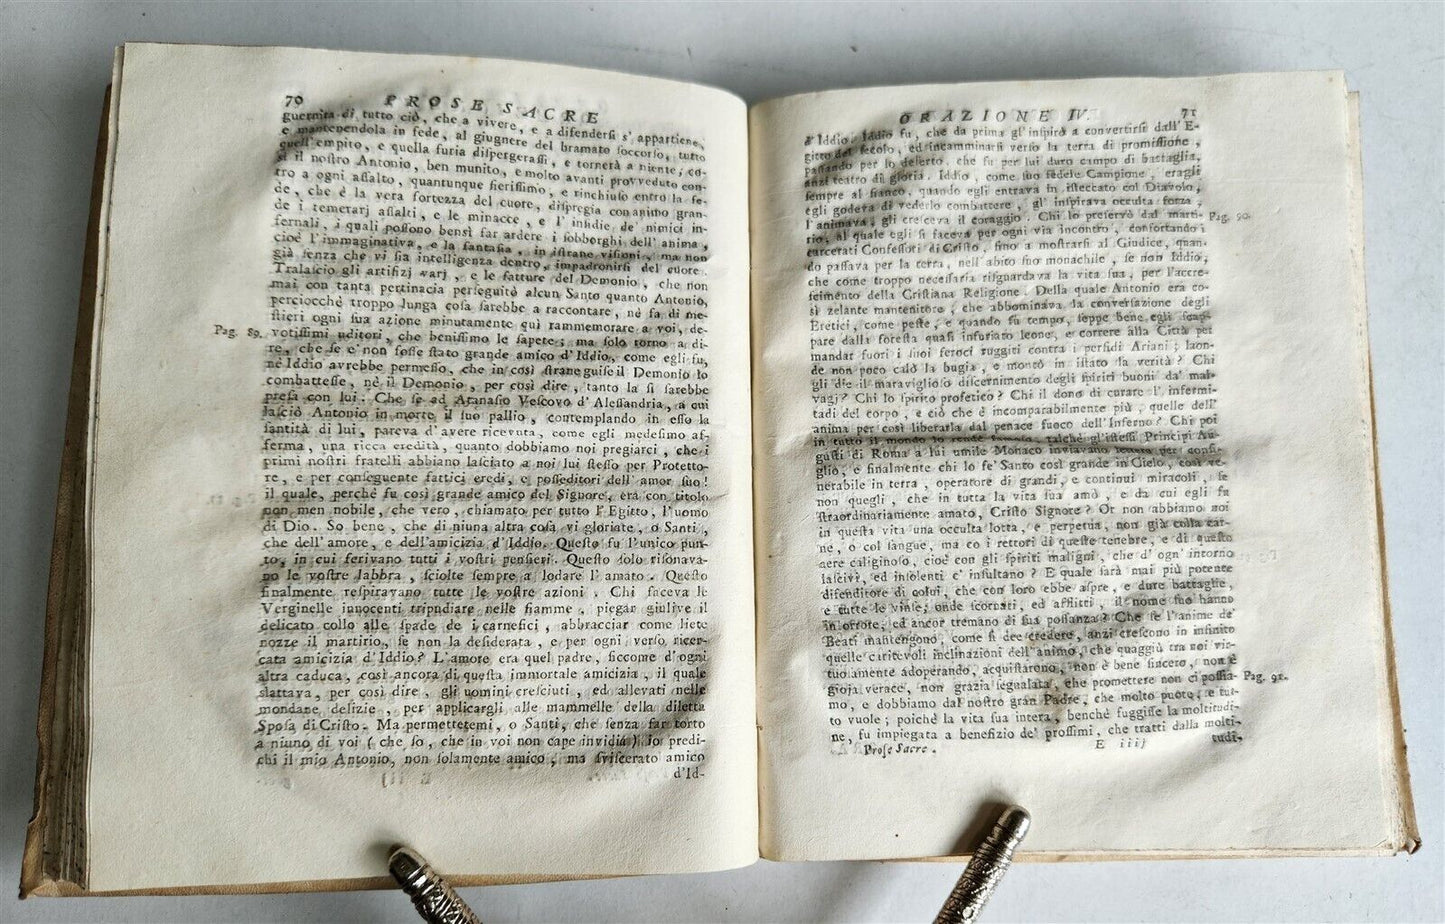 70 PROSE SACRE
guernita di tutto ciò, che a vivere, e a difenderſi s' appartiene,
e mantenendola in fede, al giugnere del bramato ſoccorſo, tutto
quell' empito, e quella furia diſpergeraſſi, e tornerà a niente; co-
sì il noſtro Antonio, ben munito, e molto avanti provveduto con-
tro a ogni aſſalto, quantunque fieriſſimo, e rinchiuſo entro la fe-
de, che è la vera fortezza del cuore, diſpregia con animo gran-
de i temerarj aſſalti, e le minacce, e l' inſidie de' nimici in-
fernali, i quali poſſono bensì far ardere i ſobborghi dell' anima,
cioè l' immaginativa, e la fantaſia, in iſtrane viſioni, ma non
già ſenza che vi ſia intelligenza dentro, impadronirſi del cuore.
Tralaſcio gli artifizj varj, e le fatture del Demonio, che non
mai con tanta pertinacia perſeguitò alcun Santo quanto Antonio,
perciocchè troppo lunga coſa ſarebbe a raccontare, nè fa di me-
ſtieri ogni ſua azione minutamente quì rammemorare a voi, de-
Pag. 89. votiſſimi uditori, che beniſſimo le ſapete; ma ſolo torno a di-
re, che ſe e' non foſſe ſtato grande amico d' Iddio, come egli fu,
nè Iddio avrebbe permeſſo, che in così ſtrane guiſe il Demonio lo
combatteſſe, nè il Demonio, per così dire, tanto la ſi ſarebbe
preſa con lui. Che ſe ad Atanaſio Veſcovo d' Aleſſandria, a cui
laſciò Antonio in morte il ſuo pallio, contemplando in eſſo la
ſantità di lui, pareva d' avere ricevuta, come egli medeſimo af-
ferma, una ricca eredità, quanto dobbiamo noi pregiarci, che i
primi noſtri fratelli abbiano laſciato a noi lui ſteſſo per Protetto-
re, e per conſeguente fattici eredi, e poſſeditori dell' amor ſuo!
il quale, perchè fu così grande amico del Signore, era con titolo
non men nobile, che vero, chiamato per tutto l' Egitto, l' uomo
di Dio. So bene, che di niuna altra coſa vi gloriate, o Santi,
che dell' amore, e dell' amicizia d' Iddio. Queſto fu l' unico pun-
to, in cui ferivano tutti i voſtri penſieri. Queſto ſolo riſonava-
no le voſtre labbra, ſciolte ſempre a lodare l' amato. Queſto
finalmente reſpiravano tutte le voſtre azioni. Chi faceva le
Verginelle innocenti tripudiare nelle fiamme, piegar giulive il
delicato collo alle ſpade de i carnefici, abbracciar come liete
nozze il martirio, ſe non la deſiderata, e per ogni verſo ricer-
cata amicizia d' Iddio? L' amore era quel padre, ſiccome d' ogni
altra caduca, così ancora di queſta immortale amicizia, il quale
slattava, per così dire, gli uomini creſciuti, ed allevati nelle
mondane delizie, per applicargli alle mammelle della diletta
Spoſa di Criſto. Ma permettetemi, o Santi, che ſenza far torto
a niuno di voi (che ſo, che in voi non cape invidia) io predi-
chi il mio Antonio, non ſolamente amico, ma ſviſcerato amico
d'Id-
ORAZIONE IV. 71
d' Iddio. Iddio fu, che da prima gl' inſpirò a convertirſi dall' E-
gitto del ſecolo, ed incamminarſi verſo la terra di promiſſione,
paſſando per lo deſerto, che fu per lui duro campo di battaglia,
anzi teatro di gloria. Iddio, come ſuo fedele Campione, eragli
ſempre al fianco, quando egli entrava in iſteccato col Diavolo;
egli godeva di vederlo combattere, gl' inſpirava occulta forza,
l' animava, gli creſceva il coraggio. Chi lo preſervò dal marti- Pag. 90.
rio, al quale egli ſi faceva per ogni via incontro, confortando i
carcerati Confeſſori di Criſto, fino a moſtrarſi al Giudice, quan-
do paſſava per la terra, nell' abito ſuo monachile, ſe non Iddio,
che come troppo neceſſaria riſguardava la vita ſua, per l' accre-
ſcimento della Criſtiana Religione. Della quale Antonio era co-
sì zelante mantenitore, che abbominava la converſazione degli
Eretici, come peſte, e quando fu tempo, ſeppe bene egli ſcap-
pare dalla foreſta quaſi infuriato leone, e correre alla Città per
mandar fuori i ſuoi feroci ruggiti contra i perfidi Ariani; laon-
de non poco calò la bugia, e montò in iſtato la verità? Chi
gli diè il maraviglioſo diſcernimento degli ſpiriti buoni da' mal-
vagj? Chi lo ſpirito profetico? Chi il dono di curare l' infermi-
tadi del corpo, e ciò che è incomparabilmente più, quelle dell'
anima per così liberarla dal penace fuoco dell' Inferno? Chi poi
in tutto il mondo lo rende famoſo, talchè gl' iſteſſi Principi Au-
guſti di Roma a lui umile Monaco inviavano lettere per conſi-
glio, e finalmente chi lo fe' Santo così grande in Cielo, così ve-
nerabile in terra, operatore di grandi, e continui miracoli, ſe
non quegli, che in tutta la vita ſua amò, e da cui egli fu
ſtraordinariamente amato, Criſto Signore? Or non abbiamo noi
in queſta vita una occulta lotta, e perpetua, non già colla car-
ne, o col ſangue, ma co i rettori di queſte tenebre, e di queſto
aere caliginoſo, cioè con gli ſpiriti maligni, che d' ogn' intorno
laſcivi, ed inſolenti c' inſultano? E quale ſarà mai più potente
difenditore di colui, che con loro ebbe aſpre, e dure battaglie,
e tutte le vinſe; onde ſcornati, ed afflitti, il nome ſuo hanno
in orrore, ed ancor tremano di ſua poſſanza? Che ſe l' anime de'
Beati mantengono, come ſi dee credere, anzi creſcono in infinito
quelle caritevoli inclinazioni dell' animo, che quaggiù tra noi vir-
tuoſamente adoperando, acquiſtarono, non è bene ſincero, non è
gioja verace, non grazia ſegnalata, che promettere non ci poſſia- Pag. 91.
mo, e dobbiamo dal noſtro gran Padre, che molto puote, e tut-
to vuole; poichè la vita ſua intera, benchè fuggiſſe la moltitudi-
ne, fu impiegata a benefizio de' proſſimi, che tratti dalla molti-
Proſe Sacre. E iiij tudi-